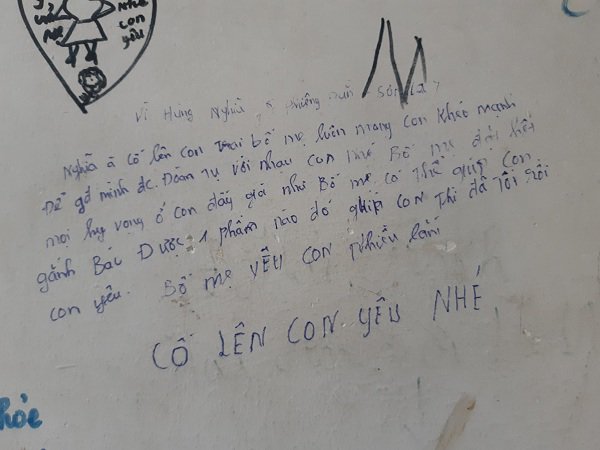 NHÉ
con
yêu
Vì Hùng Nghĩa
Nghĩa à cố lên con trai bố mẹ luôn mong con khoẻ mạnh
Để gđ mình đc. Đoàn tụ với nhau con nhé Bố mẹ đặt hết
mọi hy vọng ở con đấy giá như Bố mẹ có thể giúp con
gánh Bác Được 1 phầm nào đó giúp con thì đã tốt rồi
con yêu. Bố mẹ YÊU CON Nhiều lắm
CỐ LÊN CON YÊU NHÉ
khỏe